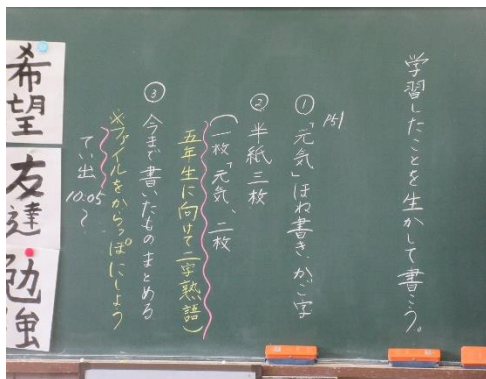 学習したことを生かして書こう。
P51
①「元気」ほね書き、かご字
②半紙三枚
(一枚「元気、二枚
五年生に向けて二字熟語)
③今まで書いたものまとめる
※ファイルをからっぽにしよう
てい出
10:05〜
希望
友達
勉強